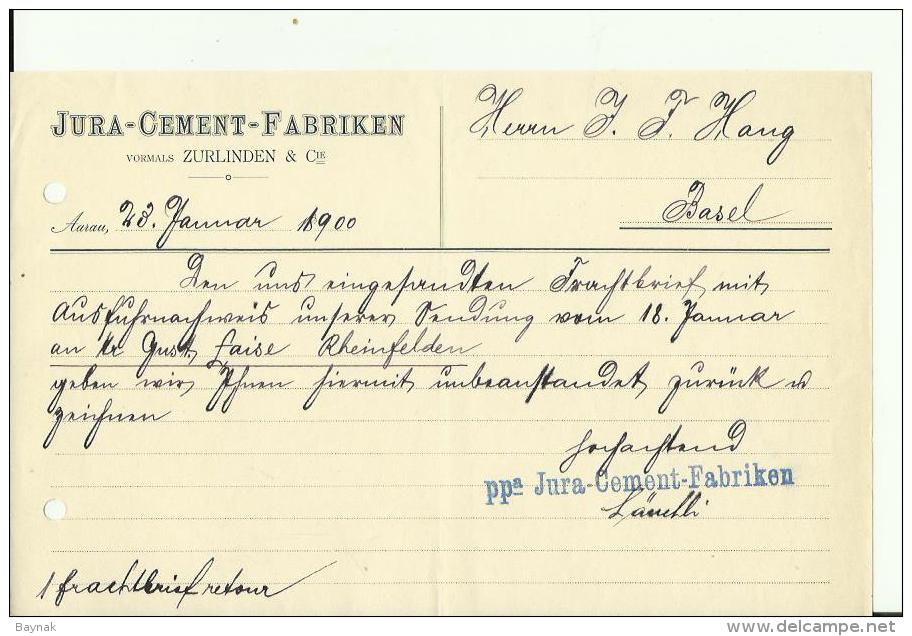 JURA-CEMENT-FABRIKEN
VORMALS ZURLINDEN & CIE
Aarau, 23. Januar 1900
Herrn J. F. Haug
Basel
Den uns eingesandten Frachtbrief mit
Ausfuhrnachweis unserer Sendung vom 18. Januar
an Hr Gust. Faise Rheinfelden
geben wir Ihnen hiermit unbeanstandet zurück u
zeichnen
Hochachtend
ppa Jura-Cement-Fabriken
1 Frachtbrief retour
Baynak
www.delcampe.net